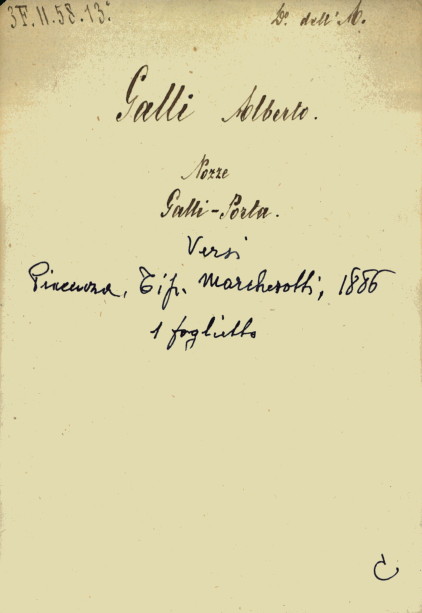 3F.II.58.13° D° dell'A.
Galli Alberto.
Nozze
Galli-Porta.
Versi
Piacenza, Tip. Marchesotti, 1886
1 foglietto
C